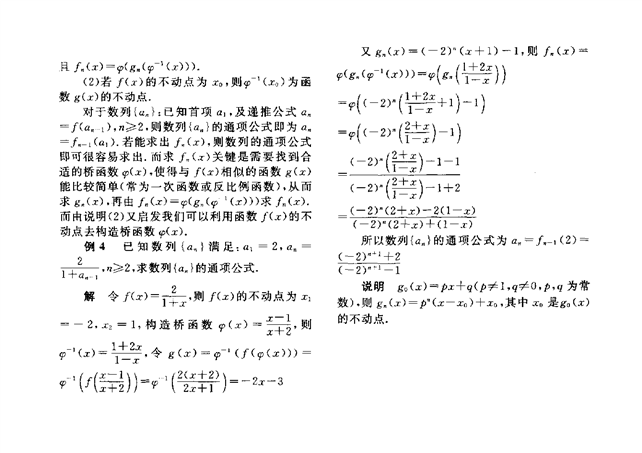 且 fₙ(x)=φ(gₙ(φ⁻¹(x))).
(2)若 f(x)的不动点为 x₀,则φ⁻¹(x₀)为函
数 g(x)的不动点.
对于数列{aₙ};已知首项 a₁,及递推公式 aₙ
=f(aₙ₋₁),n≥2,则数列{aₙ}的通项公式即为 aₙ
=fₙ₋₁(a₁).若能求出 fₙ(x),则数列的通项公式
即可很容易求出.而求 fₙ(x)关键是需要找到合
适的桥函数 φ(x),使得与 f(x)相似的函数 g(x)
能比较简单(常为一次函数或反比例函数),从而
求 gₙ(x),再由 fₙ(x)=φ(gₙ(φ⁻¹(x)))求 fₙ(x).
而由说明(2)又启发我们可以利用函数 f(x)的不
动点去构造桥函数 φ(x).
例 4 已知数列{aₙ}满足:a₁=2,aₙ=
2/(1+aₙ₋₁),n≥2,求数列{aₙ}的通项公式.
解 令 f(x)=2/(1+x),则 f(x)的不动点为 x₁
=-2,x₂=1,构造桥函数 φ(x)=(x-1)/(x+2),则
φ⁻¹(x)=(1+2x)/(1-x),令 g(x)=φ⁻¹(f(φ(x)))=
φ⁻¹(f((x-1)/(x+2)))=φ⁻¹(2(x+2)/(2x+1))=-2x-3
又 gₙ(x)=(-2)ⁿ(x+1)-1,则 fₙ(x)=
φ(gₙ(φ⁻¹(x)))=φ(gₙ((1+2x)/(1-x)))
=φ((-2)ⁿ((1+2x)/(1-x)+1)-1)
=φ((-2)ⁿ((2+x)/(1-x))-1)
=((-2)ⁿ((2+x)/(1-x))-1-1)/((-2)ⁿ((2+x)/(1-x))-1+2)
=((-2)ⁿ(2+x)-2(1-x))/((-2)ⁿ(2+x)+(1-x))
所以数列{aₙ}的通项公式为 aₙ=fₙ₋₁(2)=
((-2)ⁿ⁺¹+2)/((-2)ⁿ⁺¹-1)
说明 g₀(x)=px+q(p≠1,q≠0,p,q 为常
数),则 gₙ(x)=pⁿ(x-x₀)+x₀,其中 x₀ 是g₀(x)
的不动点.